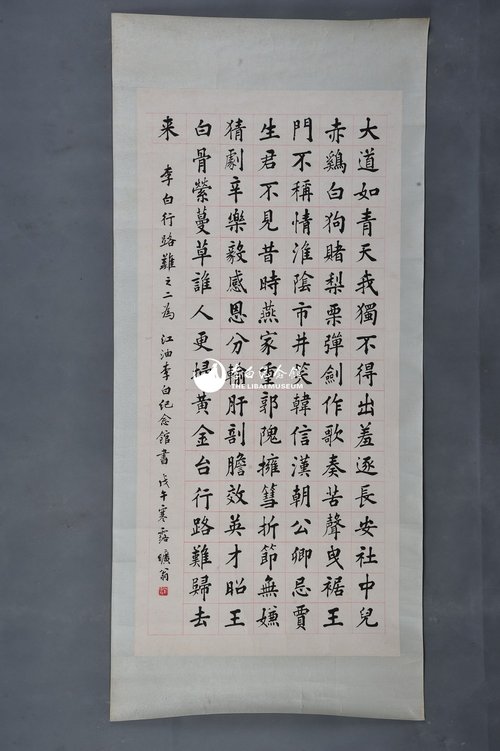 大道如青天我獨不得出羞逐長安社中兒
赤鷄白狗賭梨栗彈劍作歌奏苦聲曳裾王
門不稱情淮陰市井笑韓信漢朝公卿忌賈
生君不見昔時燕家重郭隗擁篲折節無嫌
猜劇辛樂毅感恩分輸肝剖膽效英才昭王
白骨縈蔓草誰人更掃黃金台行路難歸去
来
李白行路難之二為 江油李白纪念館書 戊午寒露 翁
THE LIBAI MUSEUM